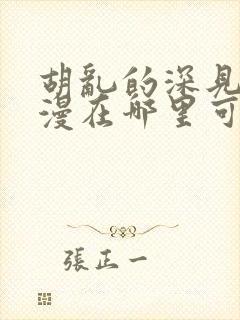 胡亂的深見
漫在哪里可
張正一